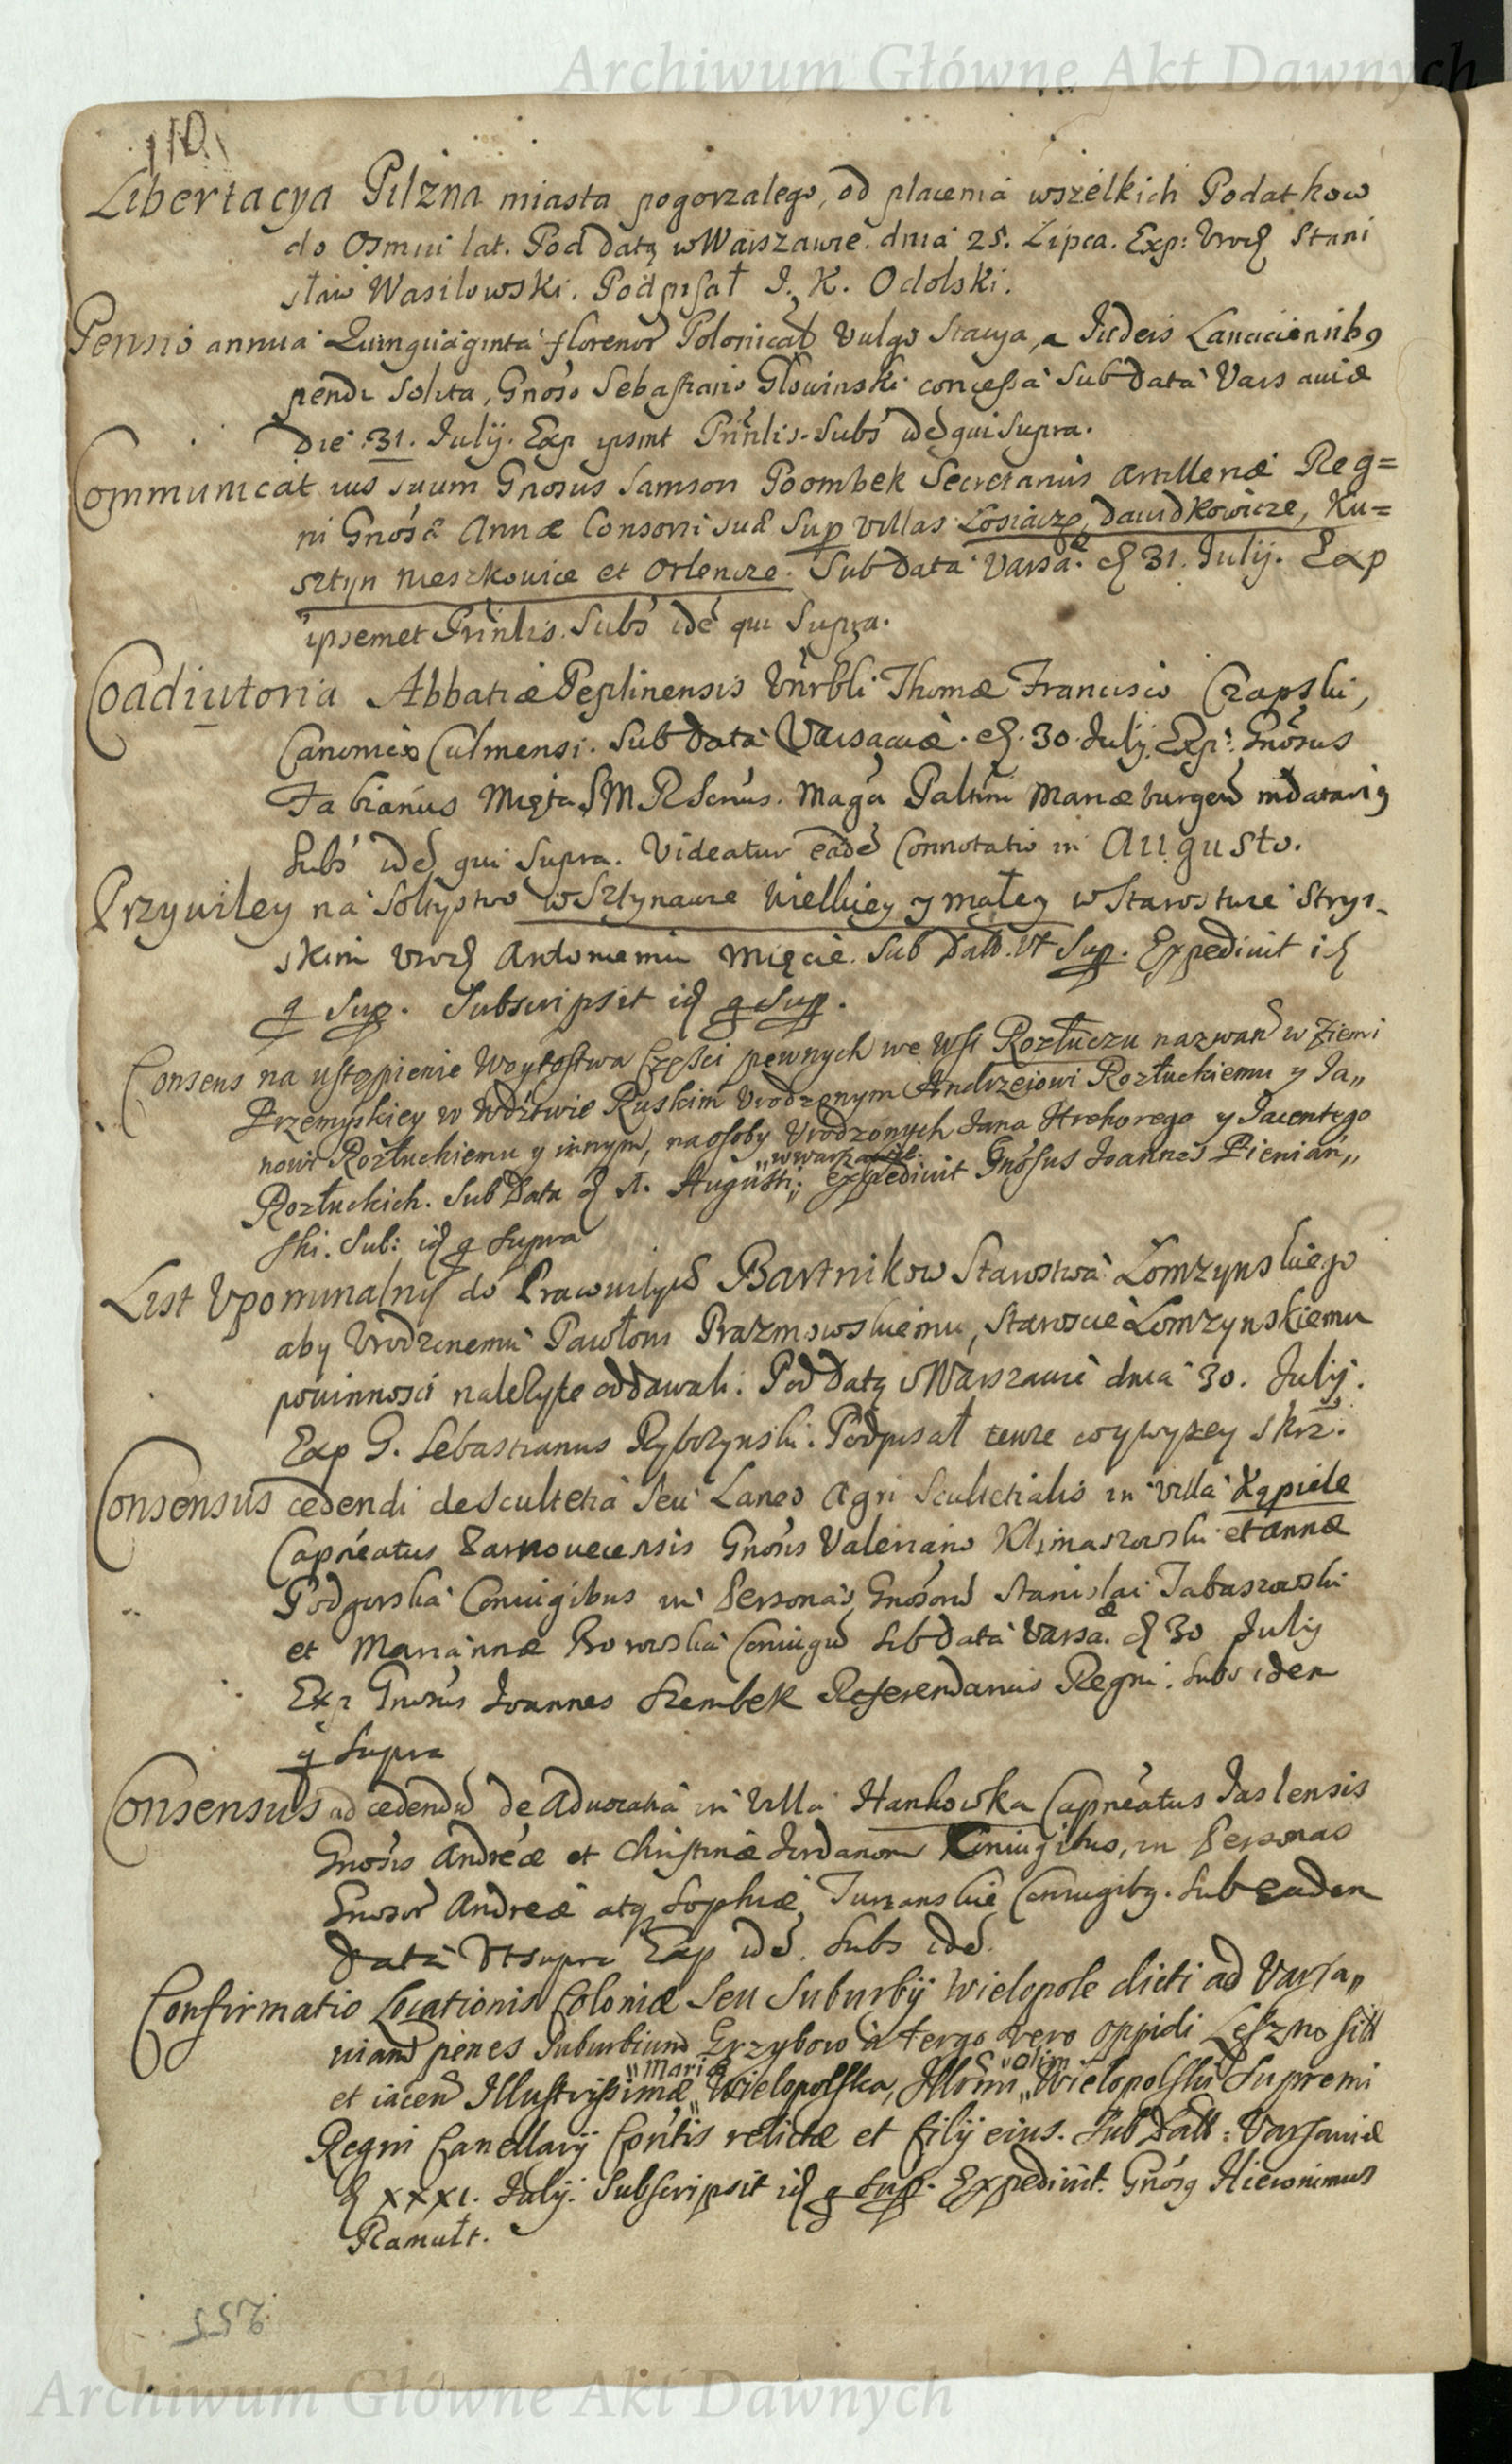 Archiwum Główne Akt Dawnych
110.
Libertacya Pilzna miasta pogorzalego, od placenia wszelkich Podatkow
do Osmiu lat. Pod datą w Warszawie dnia 25. Lipca. Exp: Urod Stani
sław Wasilowski. Podpisał J. K. Odolski.
Pensio annua Quinquaginta florenor Polonical Vulgo Stacya, a Judeis Lanciciensibus
pendi Solita, Gnoso Sebastiano Głowinski concessa Sub data Varsaviæ
Die 31. Julij. Exp ipsmt Prinlis. Subs idē qui Supra.
Communicat ius suum Gnosus Samson Poombek Secretarius Artilleriæ Reg=
ni Gnosæ Annæ Consorti suæ Sup villas Łosiacze, dawidkowicze, Ku=
sztyn Nieszkowice et Orlencze. Sub data Varsæ. d 31. Julij. Exp
ipsemet Prinlis. Subs idē qui Supra.
Coadiutoria Abbatiæ Peplinensis Vnrbli Thomæ Francisco Czapski,
Canonico Culmensi. Sub data Varsaviæ. d. 30 July. Exp: Gnosus
Fabianus Mięta SMR Scrius. Magā Paltini Mariæburgen mdatariq
Subs idē qui Supra. Videatur eadē Connotatio in Augusto.
Przywiley na Soltystwo w Sztynawie Wielkiey y małey w Starostwie Stryi-
skim Urod Antoniemu Mięcie. Sub Datt. Ut Sup. Expedivit id
q Sup. Subscripsit id q Sup.
Consens na ustąpienie Woytostwa Części pewnych we Wsi Rozłuczu nazwan w Ziemi
Przemyskiey w Wdztwie Ruskim Urodzonym Andrzejowi Rozłuckiemu y Ja„
nowi Rozłuckiemu y innym, na osoby Urodzonych Jana Hrehorego y Jacentego
„w Warszawie.
Rozłuckich. Sub Data d 1. Augusti„ expedivit Gnosus Joannes Pienian„
ski. Sub: id q Supra
List Upominalny do Bartnikow Starostwa Łomzynskiego
aby Urodzonemu Pawłowi Prazmowskiemu, Staroscie Łomzynskiemu
powinnosci nalezyte oddawali. Pod datą w Warszawie dnia 30. Julij.
Exp G. Sebastianus Rybozynski. Podpisał tenze wywyzey Skrz.
Consensus cedendi de Scultetia Seu Laneo Agri Scultetialis in villa Kąpiele
Capneatus Zarnovecensis Gnosis Valeriano Klimaszowski et Annæ
Podgorska Coniugibus in Personas Gnosorū Stanislai Jabaszowski
et Mariannæ Borowska Coniugū Sub data Varsæ. d 30 July
Exp Gnosus Joannes Szembek Referendarius Regni. Subs iden
q Supra
Consensus ad cedendū de Advocatia in Villa Hankowka Capneatus Jaslensis
Gnosis Andreæ et Christinæ Jordanom Coniugibus, in Personas
Gnosor Andreæ atq Sophiæ Coniugibq. Sub eaden
Data Ut supra Exp idē. Subs idē.
Confirmatio Locationis Coloniæ Seu Suburbij Wielopole dicti ad Varsa„
viam penes Suburbium Grzybow a tergo vero oppidi Leszno sitt
„Mariæ „olim
et iacen Illustrissimæ„ Wielopolska, Illrmi„ Wielopolski Supremi
Regni Cancellarij Contis relictæ et filij eius. Sub Datt: Varsaviæ
d XXXI. Julij. Subscripsit id q Sup. Expedivit Gnosq Hieronimus
Ramułt.
Archiwum Główne Akt Dawnych